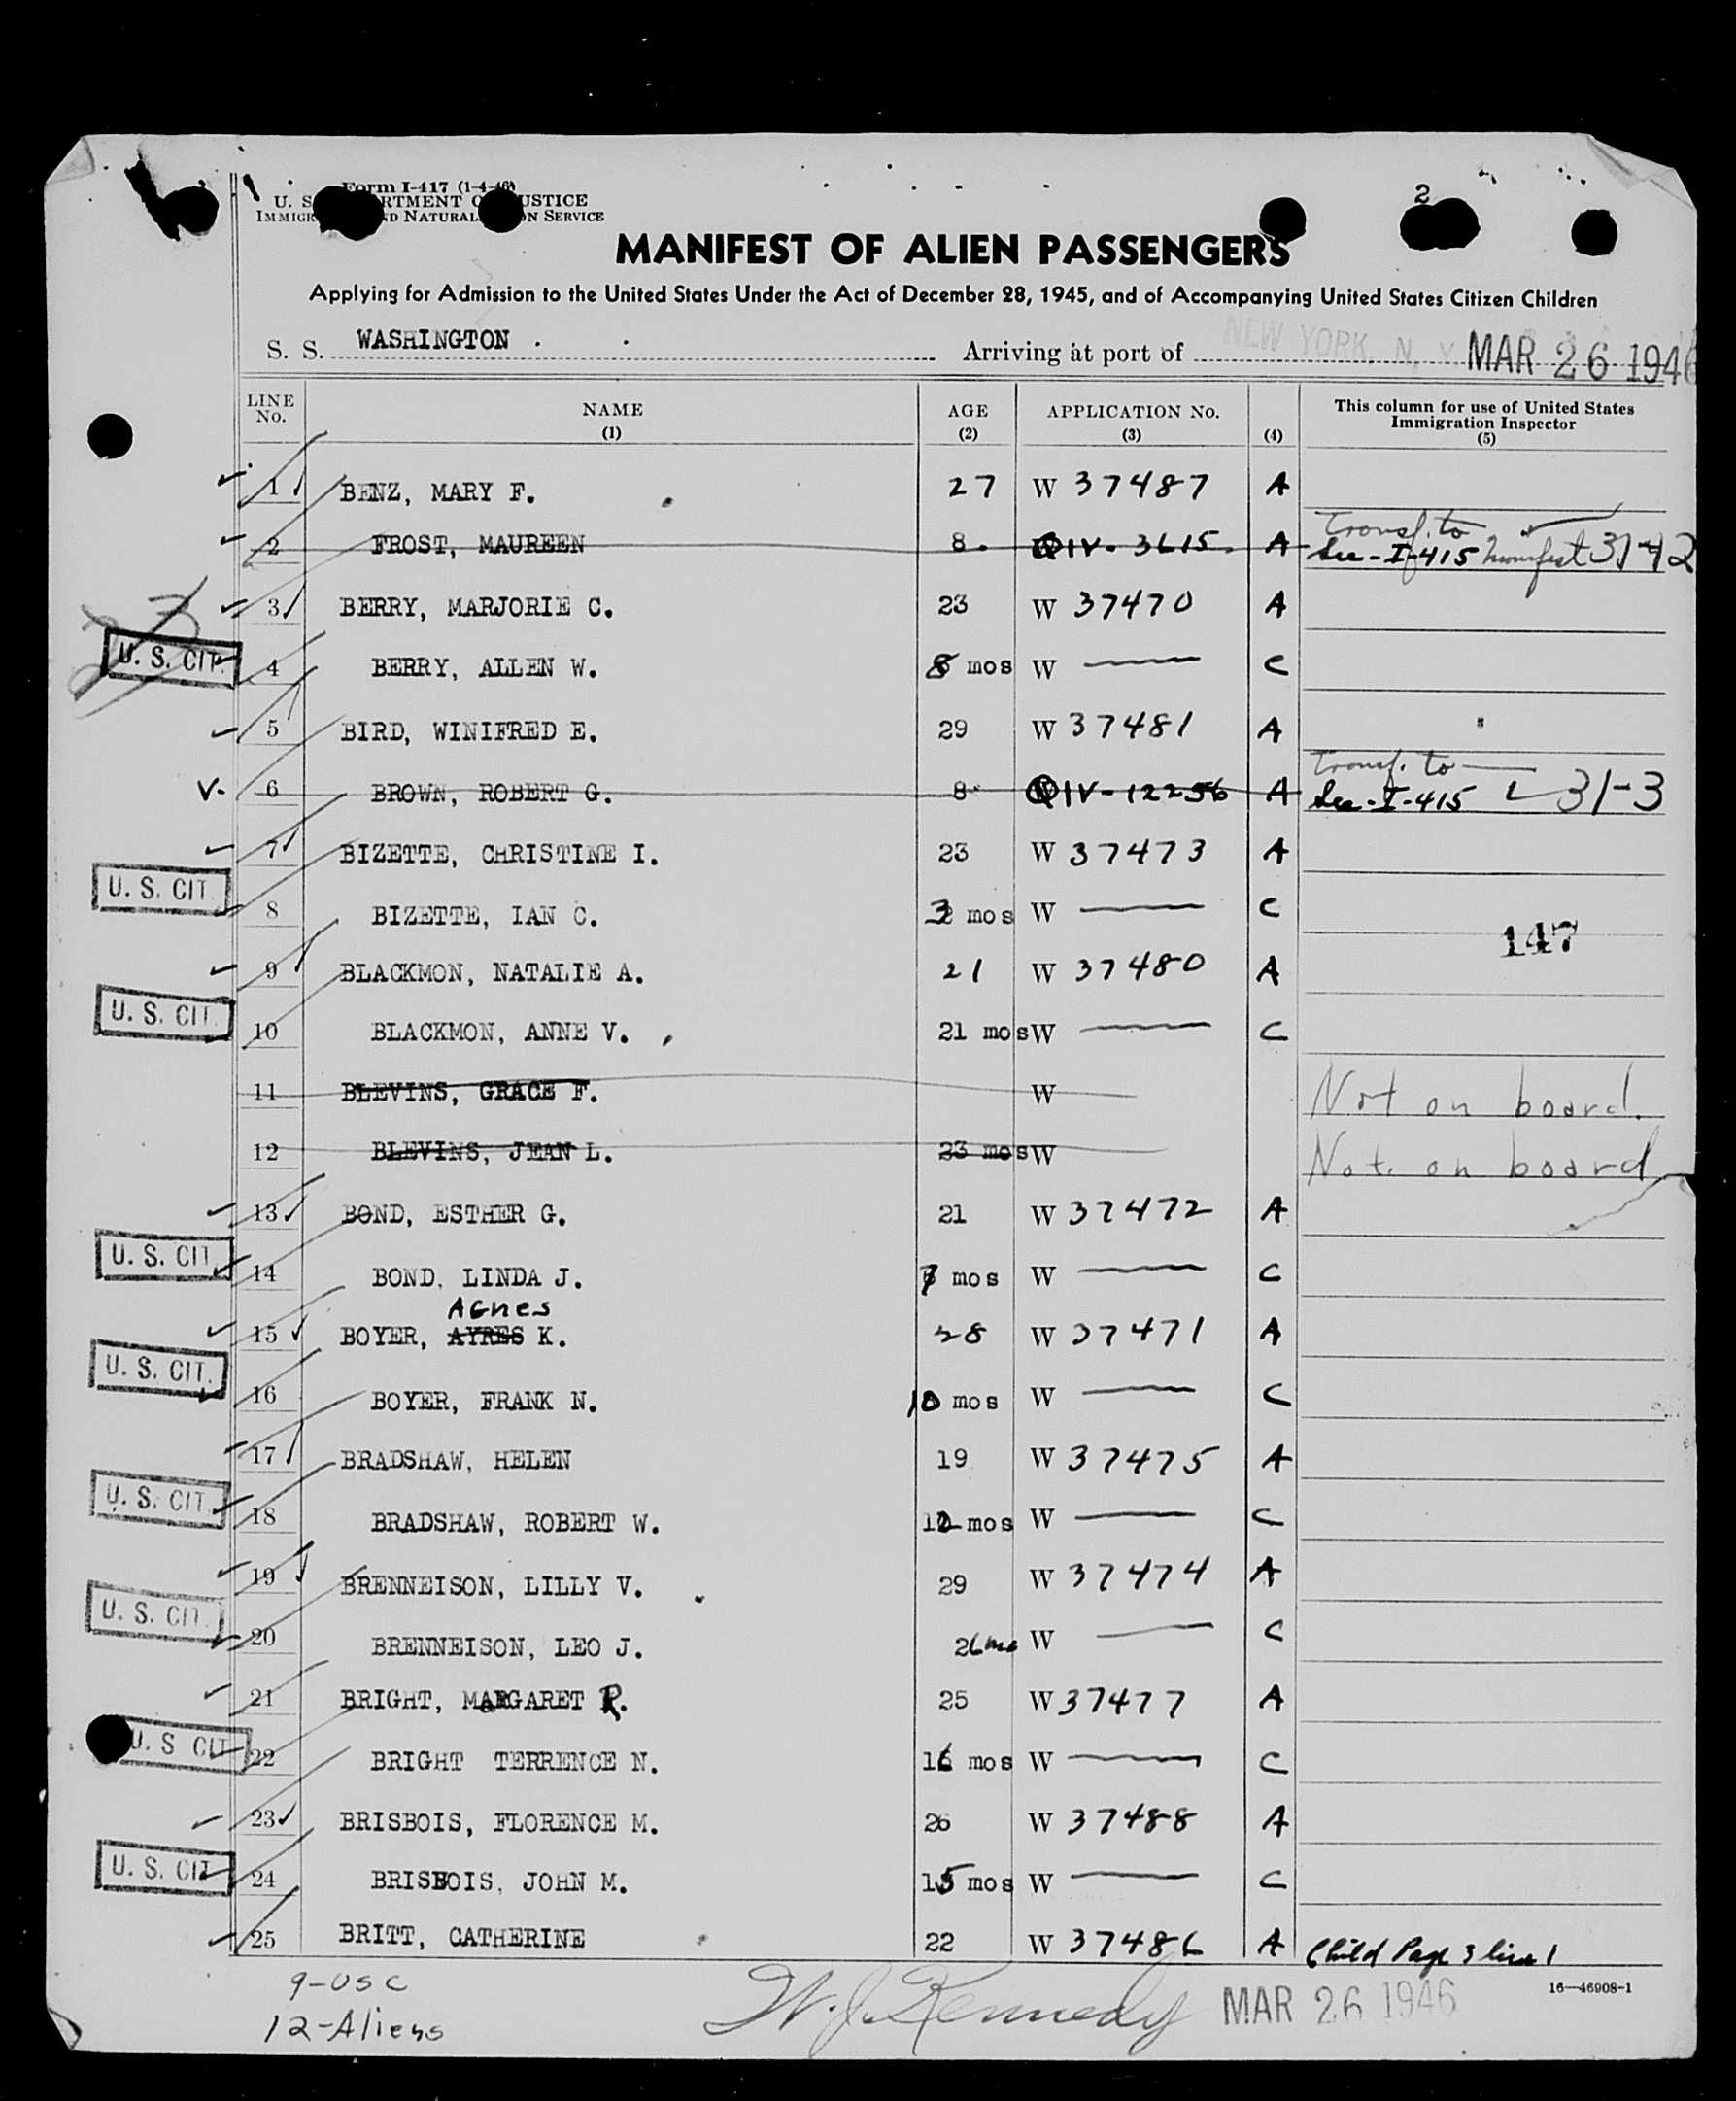 Form I-417 (1-4-46)
U. S. DEPARTMENT OF JUSTICE
IMMIGRATION AND NATURALIZATION SERVICE
2
MANIFEST OF ALIEN PASSENGERS
Applying for Admission to the United States Under the Act of December 28, 1945, and of Accompanying United States Citizen Children
S. S. WASHINGTON Arriving at port of NEW YORK, N. Y. MAR 26 1946
LINE No. NAME (1) AGE (2) APPLICATION No. (3) (4) This column for use of United States Immigration Inspector (5)
1 BENZ, MARY F. 27 W 37487 A
Transf. to
2 FROST, MAUREEN 8 QIV-3615 A See-I-415 Manifest 31-42
3 BERRY, MARJORIE C. 23 W 37470 A
U. S. CIT. 4 BERRY, ALLEN W. 8 mos W — C
5 BIRD, WINIFRED E. 29 W 37481 A
Transf. to
6 BROWN, ROBERT G. 8 QIV-12256 A See-I-415 31-3
7 BIZETTE, CHRISTINE I. 23 W 37473 A
U. S. CIT. 8 BIZETTE, IAN C. 3 mos W — C
147
9 BLACKMON, NATALIE A. 21 W 37480 A
U. S. CIT. 10 BLACKMON, ANNE V. 21 mos W — C
11 BLEVINS, GRACE F. W Not on board.
12 BLEVINS, JEAN L. 23 mos W Not on board
13 BOND, ESTHER G. 21 W 37472 A
U. S. CIT. 14 BOND, LINDA J. 7 mos W — C
Agnes
15 BOYER, AYRES K. 28 W 37471 A
U. S. CIT. 16 BOYER, FRANK N. 10 mos W — C
17 BRADSHAW, HELEN 19 W 37475 A
U. S. CIT. 18 BRADSHAW, ROBERT W. 12 mos W — C
19 BRENNEISON, LILLY V. 29 W 37474 A
U. S. CIT. 20 BRENNEISON, LEO J. 26 mo W — C
21 BRIGHT, MARGARET R. 25 W 37477 A
U. S. CIT. 22 BRIGHT TERRENCE N. 16 mos W — C
23 BRISBOIS, FLORENCE M. 26 W 37488 A
U. S. CIT. 24 BRISBOIS, JOHN M. 15 mos W — C
25 BRITT, CATHERINE 22 W 37486 A Child Page 3 line 1
9-USC
12-Aliens
W. J. Kennedy MAR 26 1946
16—46908-1